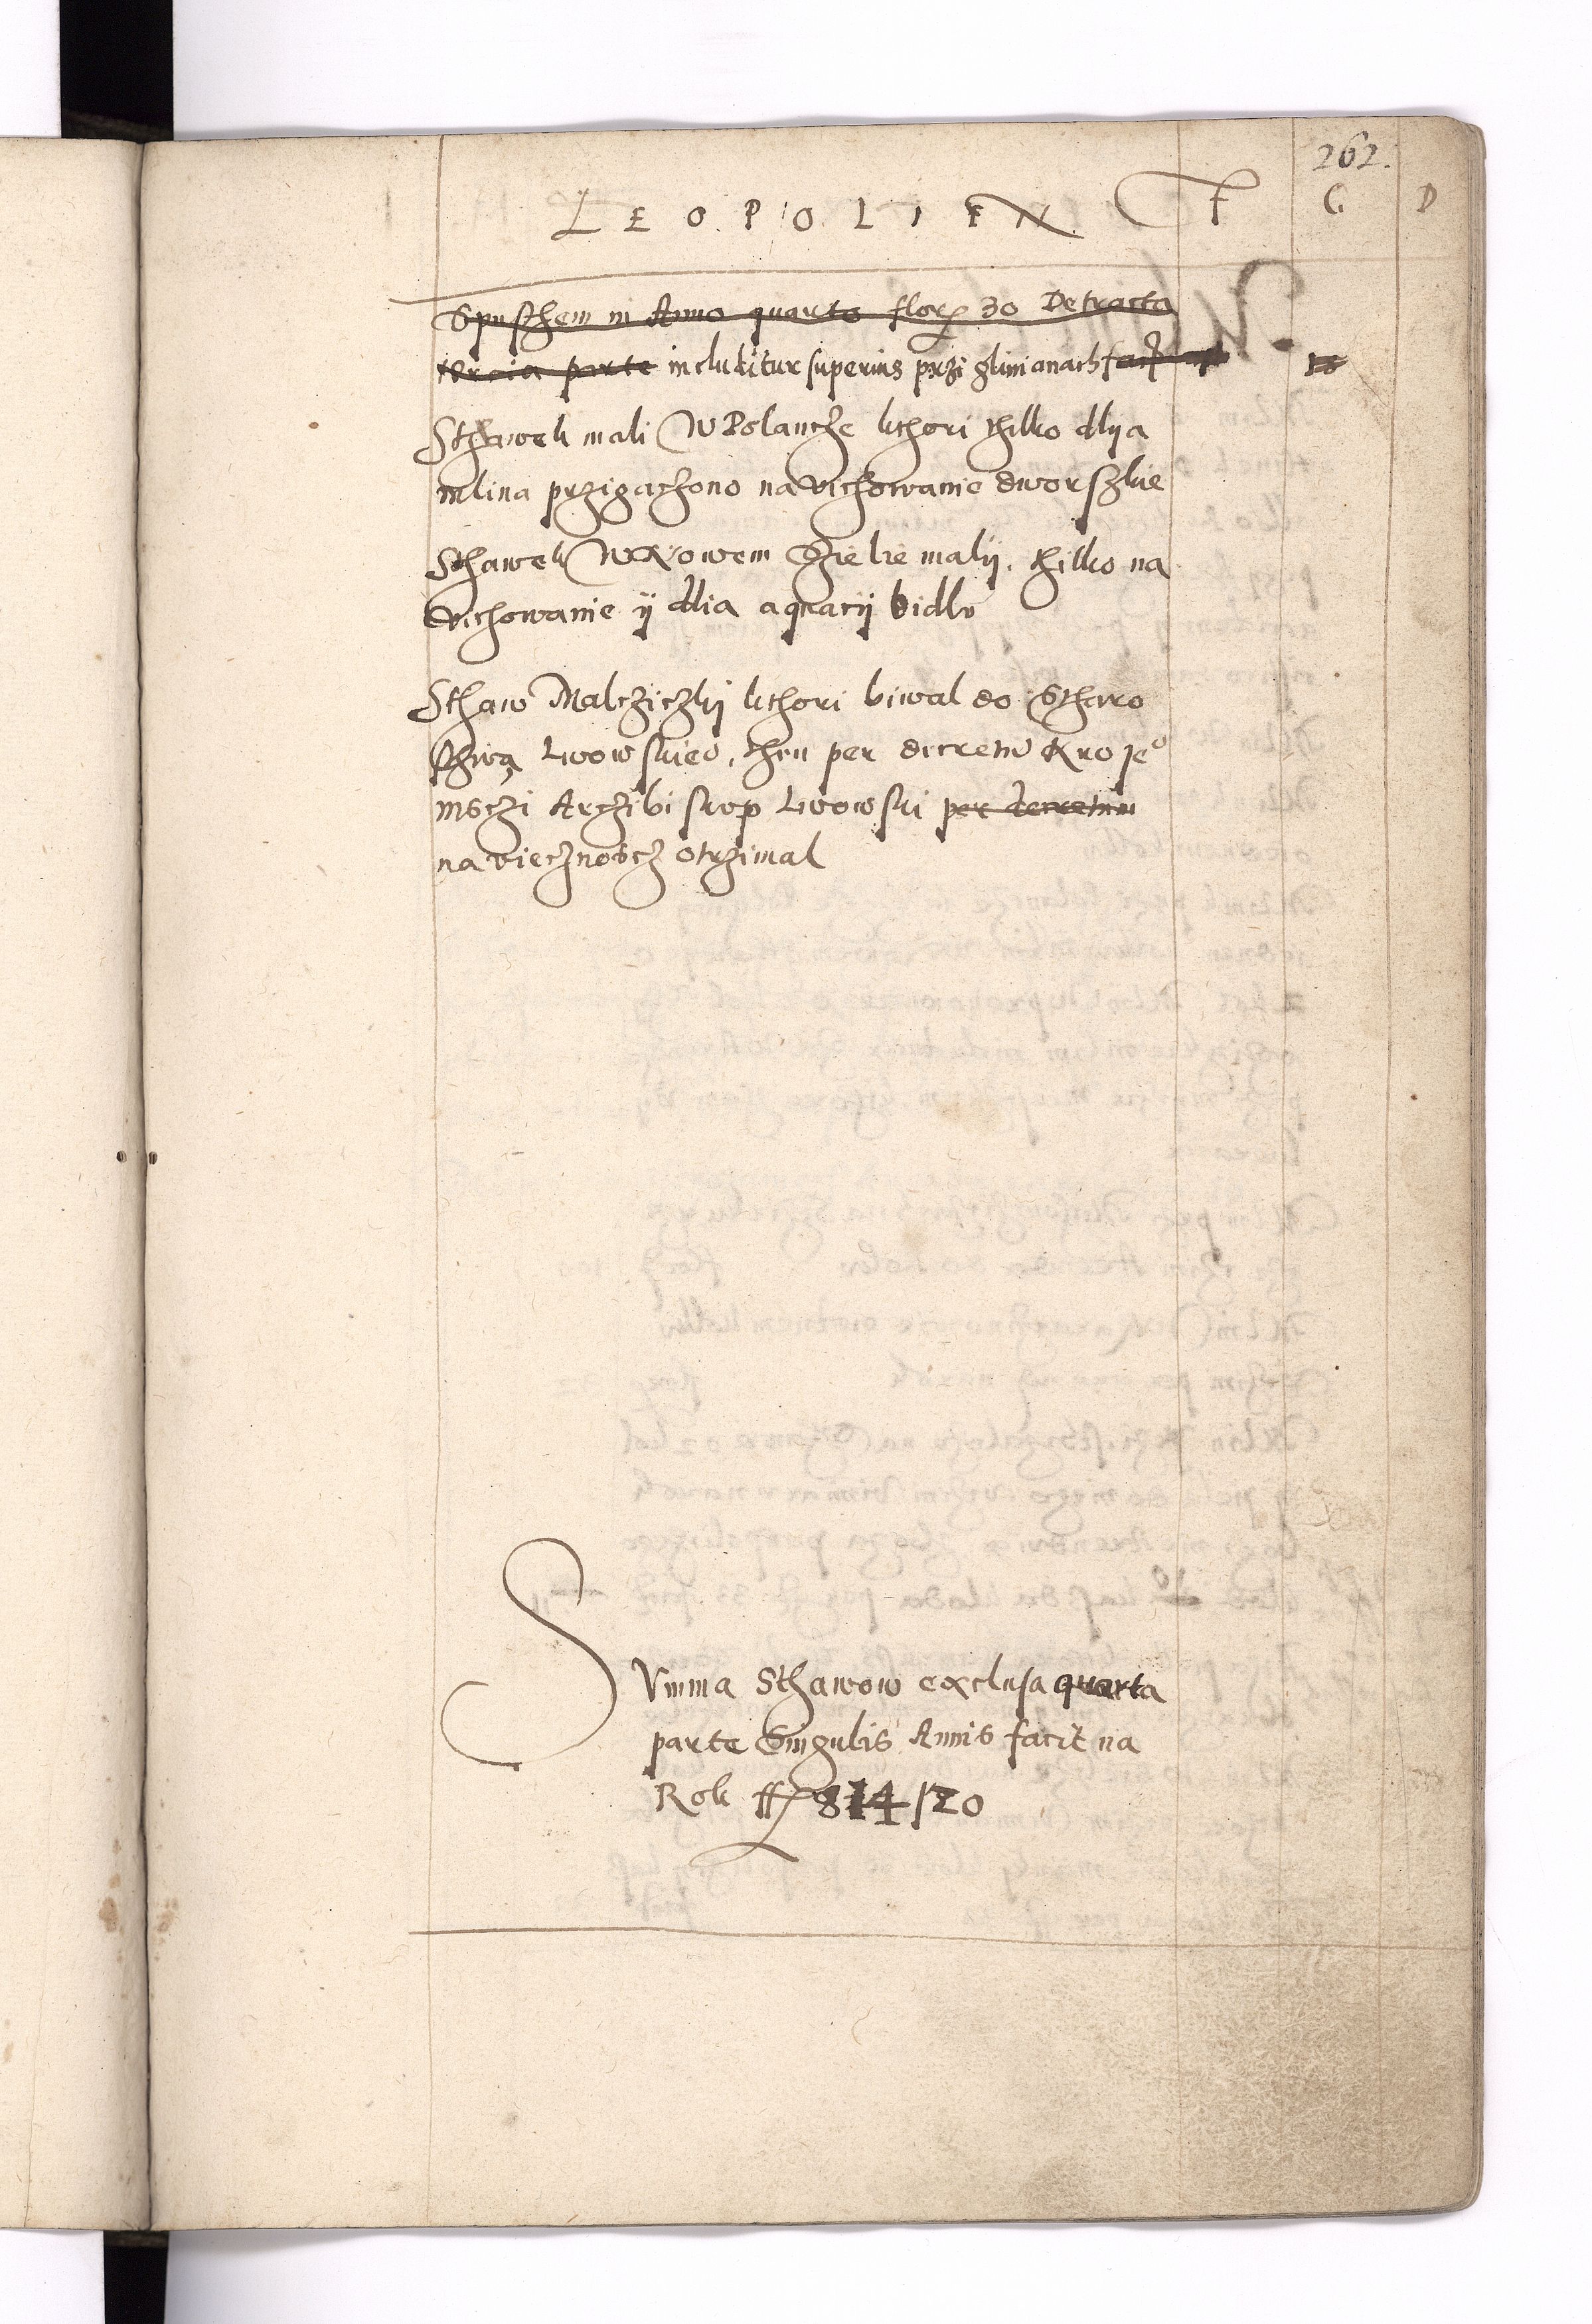 262.
LEOPOLIEN F G D
Spusthem in Anno quarto flor 30 Detracta
tercia parte includitur superius przi glinianach facit
Sthawek mali W Polancze kthori thilko dlya
mlina przigachono na vichowanie dworszkie
Sthawek W Nowem Siele malÿ, thilko na
vichowanie ÿ dlia aquacÿ bidlu
Sthaw Malcziczkÿ kthori biwal do Stharo
sthwa Lwowskieo, then per decretu Kro Jeo
msczi Archibiskop Lwowski per decretum
na viecznoscz otrzimal
Summa Sthawow exclusa quarta
parte Singulis Annis facit na
Rok ff 814/20